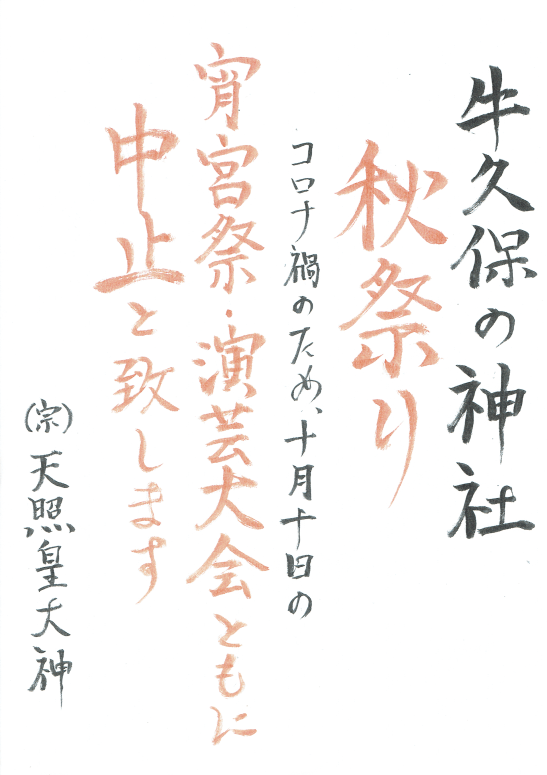 牛久保の神社
秋祭り
コロナ禍のため、十月十日の
宵宮祭・演芸大会ともに
中止と致します
(宗)天照皇大神